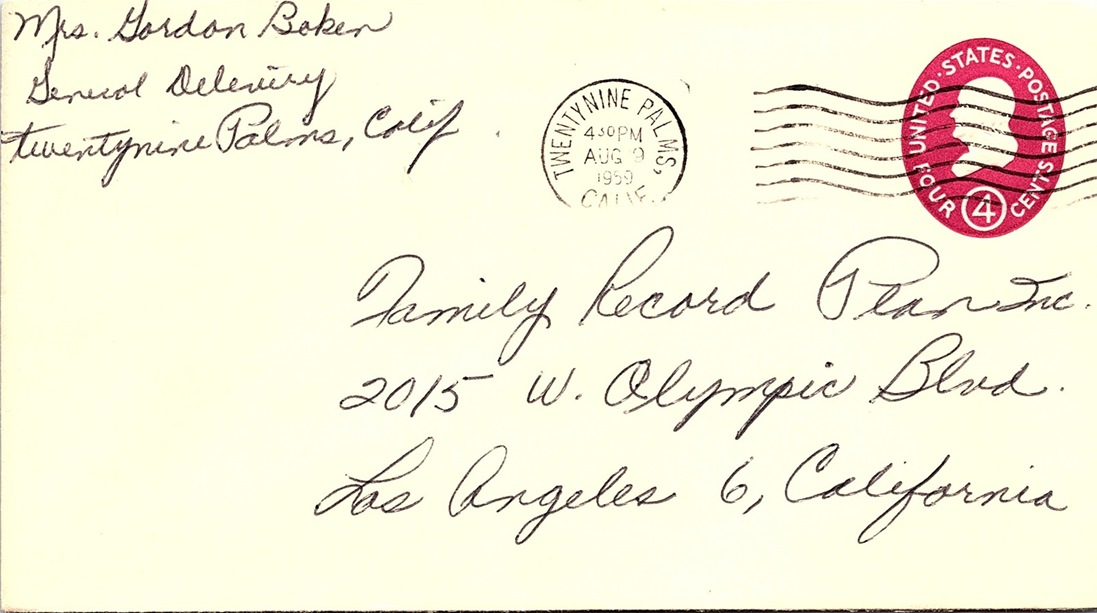 Mrs. Gordon Baker
General Delivery
Twentynine Palms, Calif.
TWENTYNINE PALMS,
4 30 PM
AUG 9
1959
CALIF.
UNITED · STATES · POSTAGE
FOUR 4 CENTS
Family Record Plan Inc.
2015 W. Olympic Blvd.
Los Angeles 6, California